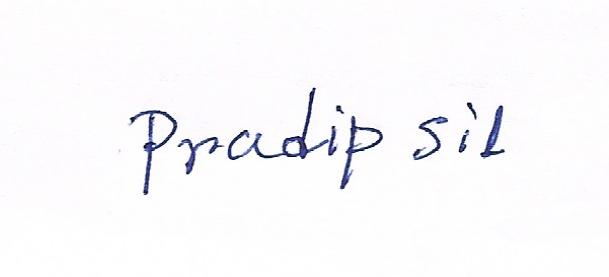 Pradip sil